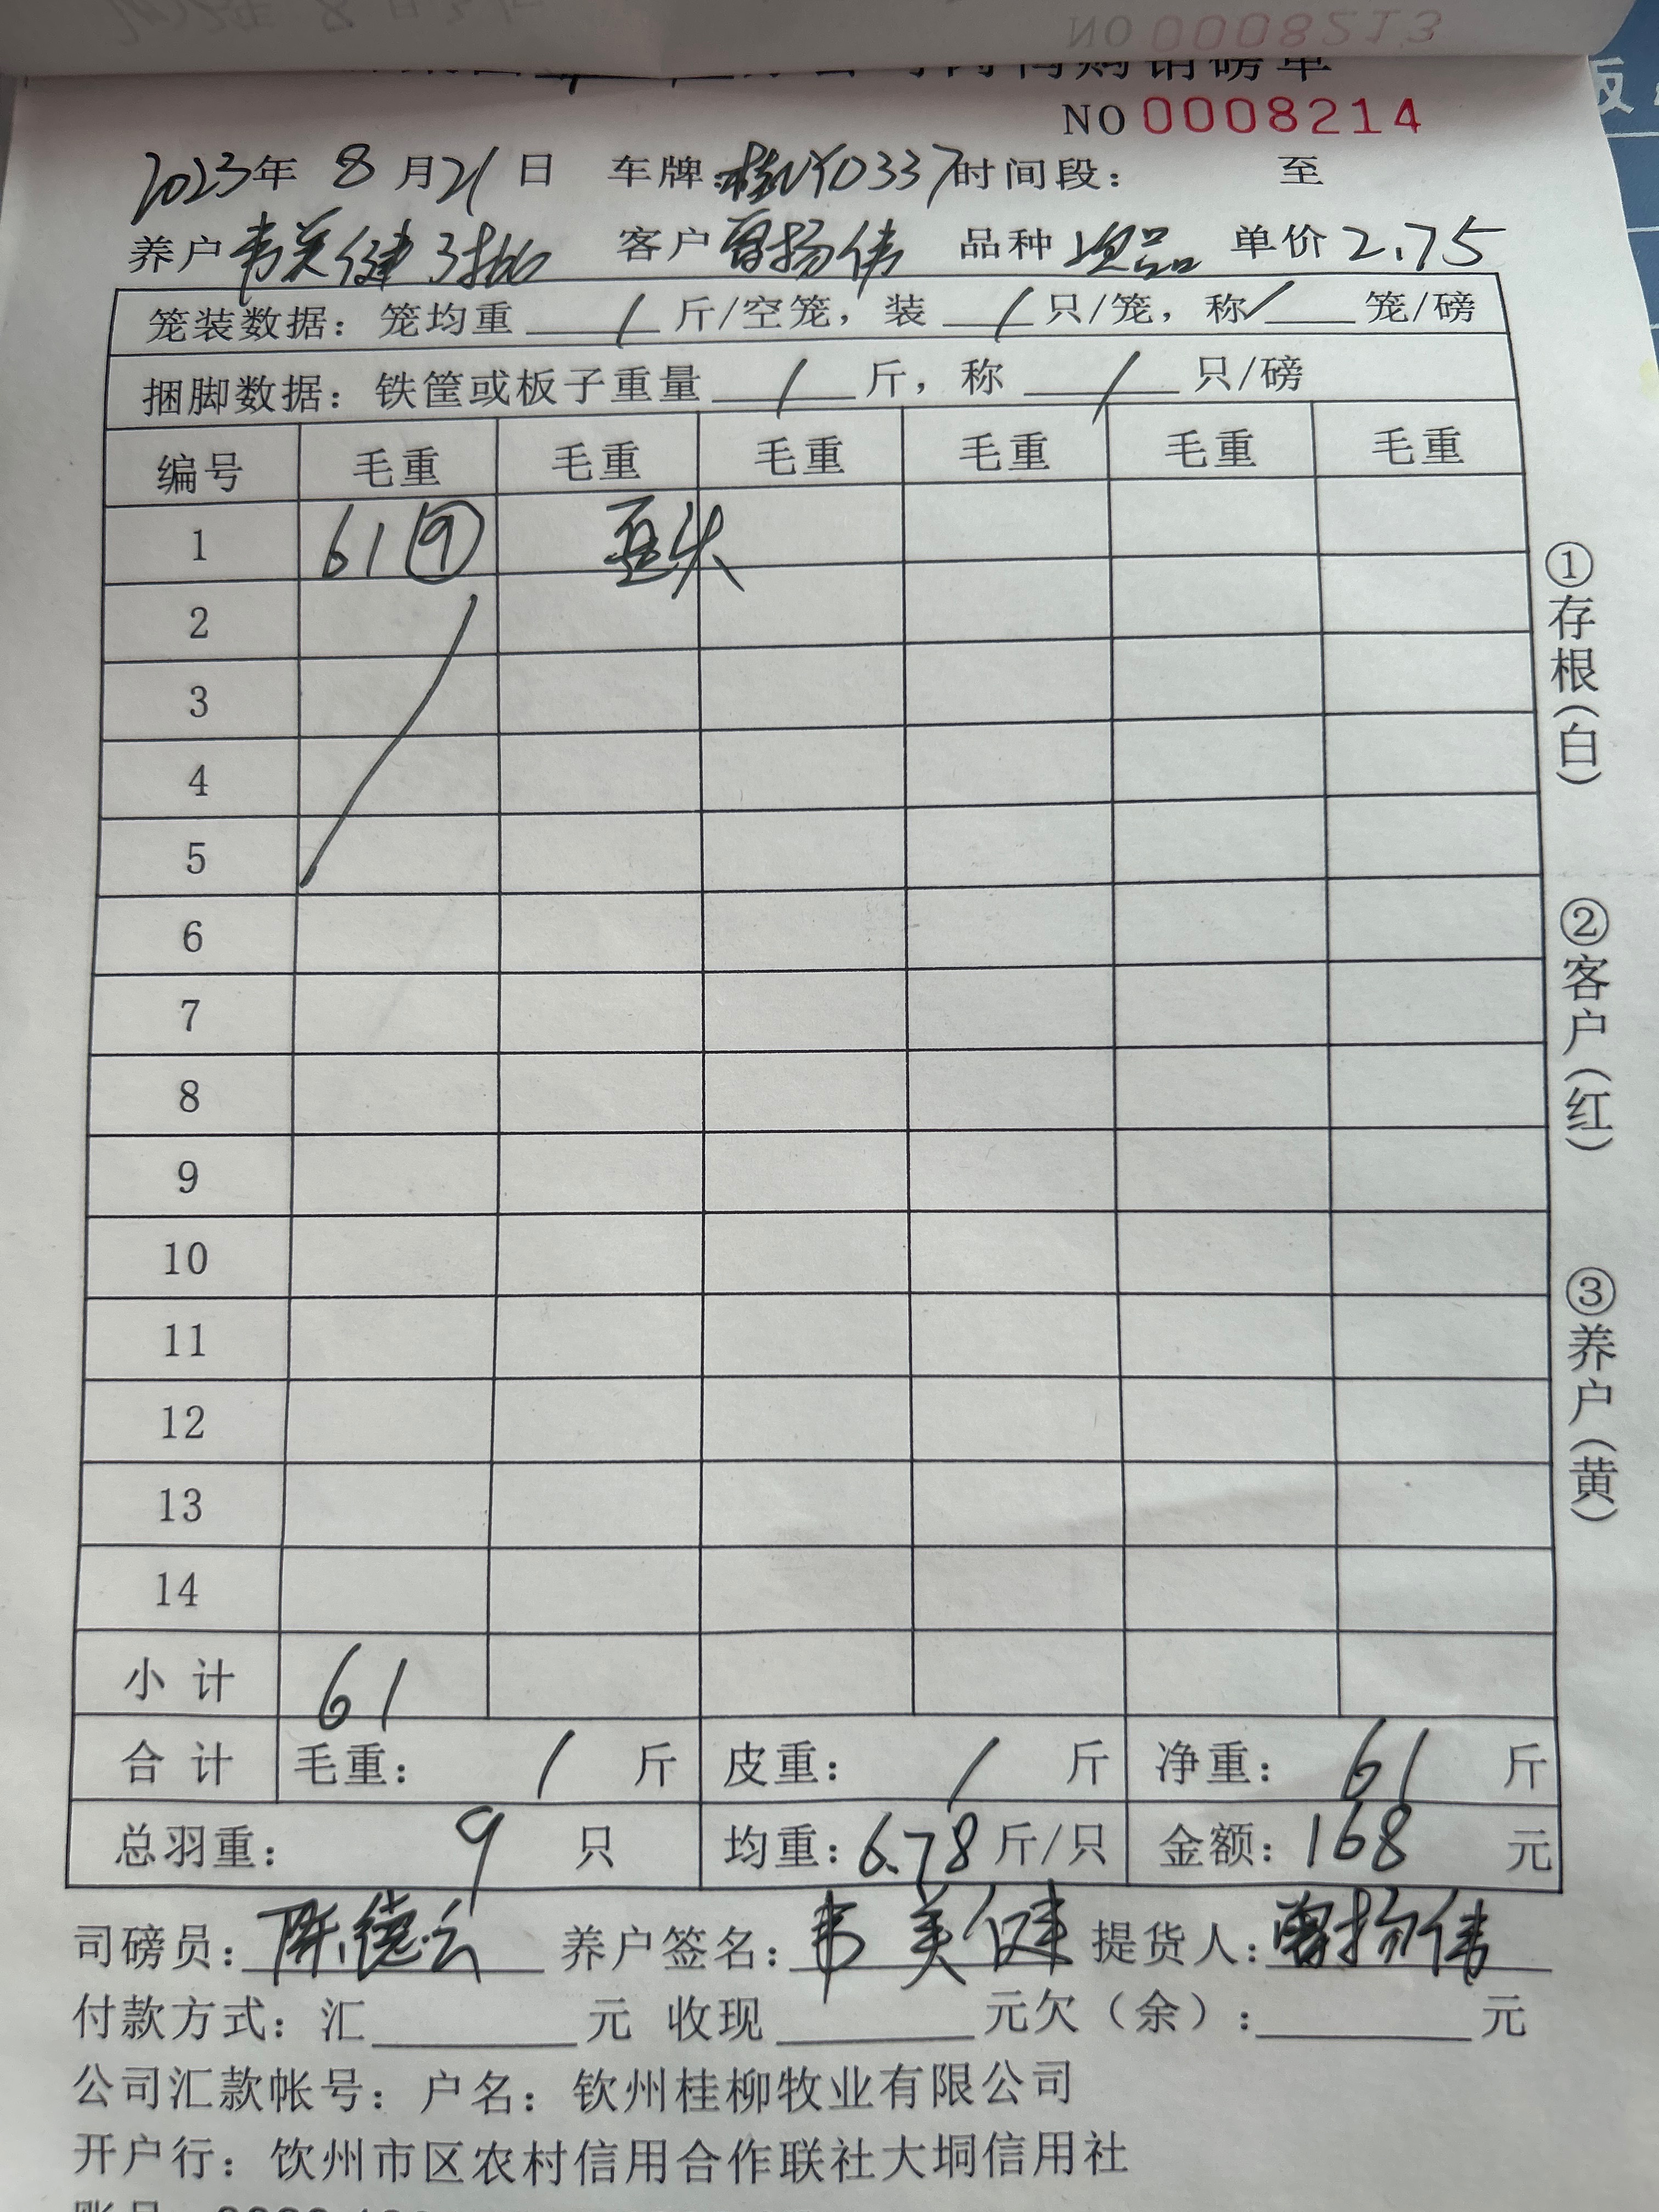 NO 0008213
购销磅单
NO 0008214
2023年 8 月 21 日 车牌:桂NY0337 时间段: 至
养户 韦美健3批 客户 曾扬伟 品种 次品 单价 2.75
笼装数据: 笼均重 / 斤/空笼, 装 / 只/笼, 称 / 笼/磅
捆脚数据: 铁筐或板子重量 / 斤, 称 / 只/磅
编号 毛重 毛重 毛重 毛重 毛重 毛重
1 61 ⑨ 歪头
2
3
4
5
6
7
8
9
10
11
12
13
14
小计 61
合计 毛重: / 斤 皮重: / 斤 净重: 61 斤
总羽重: 9 只 均重: 6.78 斤/只 金额: 168 元
司磅员: 陈德云 养户签名: 韦美健 提货人: 曾扬伟
付款方式: 汇 元 收现 元欠(余): 元
公司汇款帐号: 户名: 钦州桂柳牧业有限公司
开户行: 钦州市区农村信用合作联社大垌信用社
①存根(白)
②客户(红)
③养户(黄)